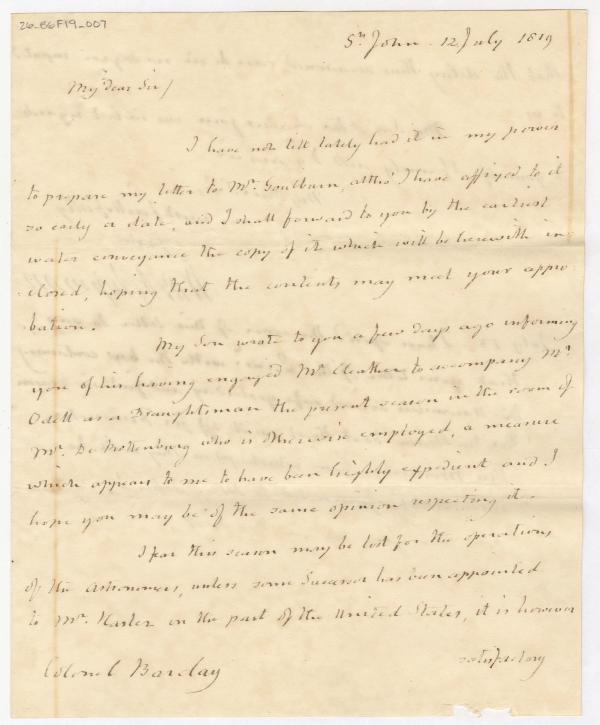 26-B6F19_007
Sᵗ John 12 July 1819
My dear Sir/
I have not till lately had it in my power
to prepare my letter to Mʳ. Goulburn, altho' I have affixed to it
so early a date, and I shall forward to you by the earliest
water conveyance the copy of it which will be herewith in
closed, hoping that the contents may meet your appro
bation.
My Son wrote to you a few days ago informing
you of his having engaged Mʳ. Cleather to accompany Mʳ.
Odell as a Draughtsman the present season in the room of
Mʳ. De Rottenburg who is otherwise employed, a measure
which appears to me to have been highly expedient and I
hope you may be of the same opinion respecting it.
I fear this season may be lost for the operations
of the Astronomers, unless some Successor has been appointed
to Mʳ. Hasler on the part of the United States, it is however
satisfactory
Colonel Barclay